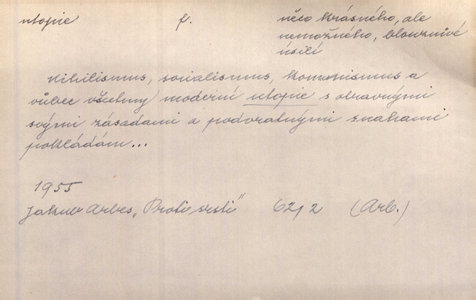 utopie f. něco krásného, ale
nemožného, blouznivé
úsilí
Nihilismus, socialismus, komunismus a
vůbec všechny moderní utopie s otravnými
svými zásadami a podvratnými snahami
pokládám...
1955
Jakub Arbes, „Proti srsti" 62, 2 (Arb.)